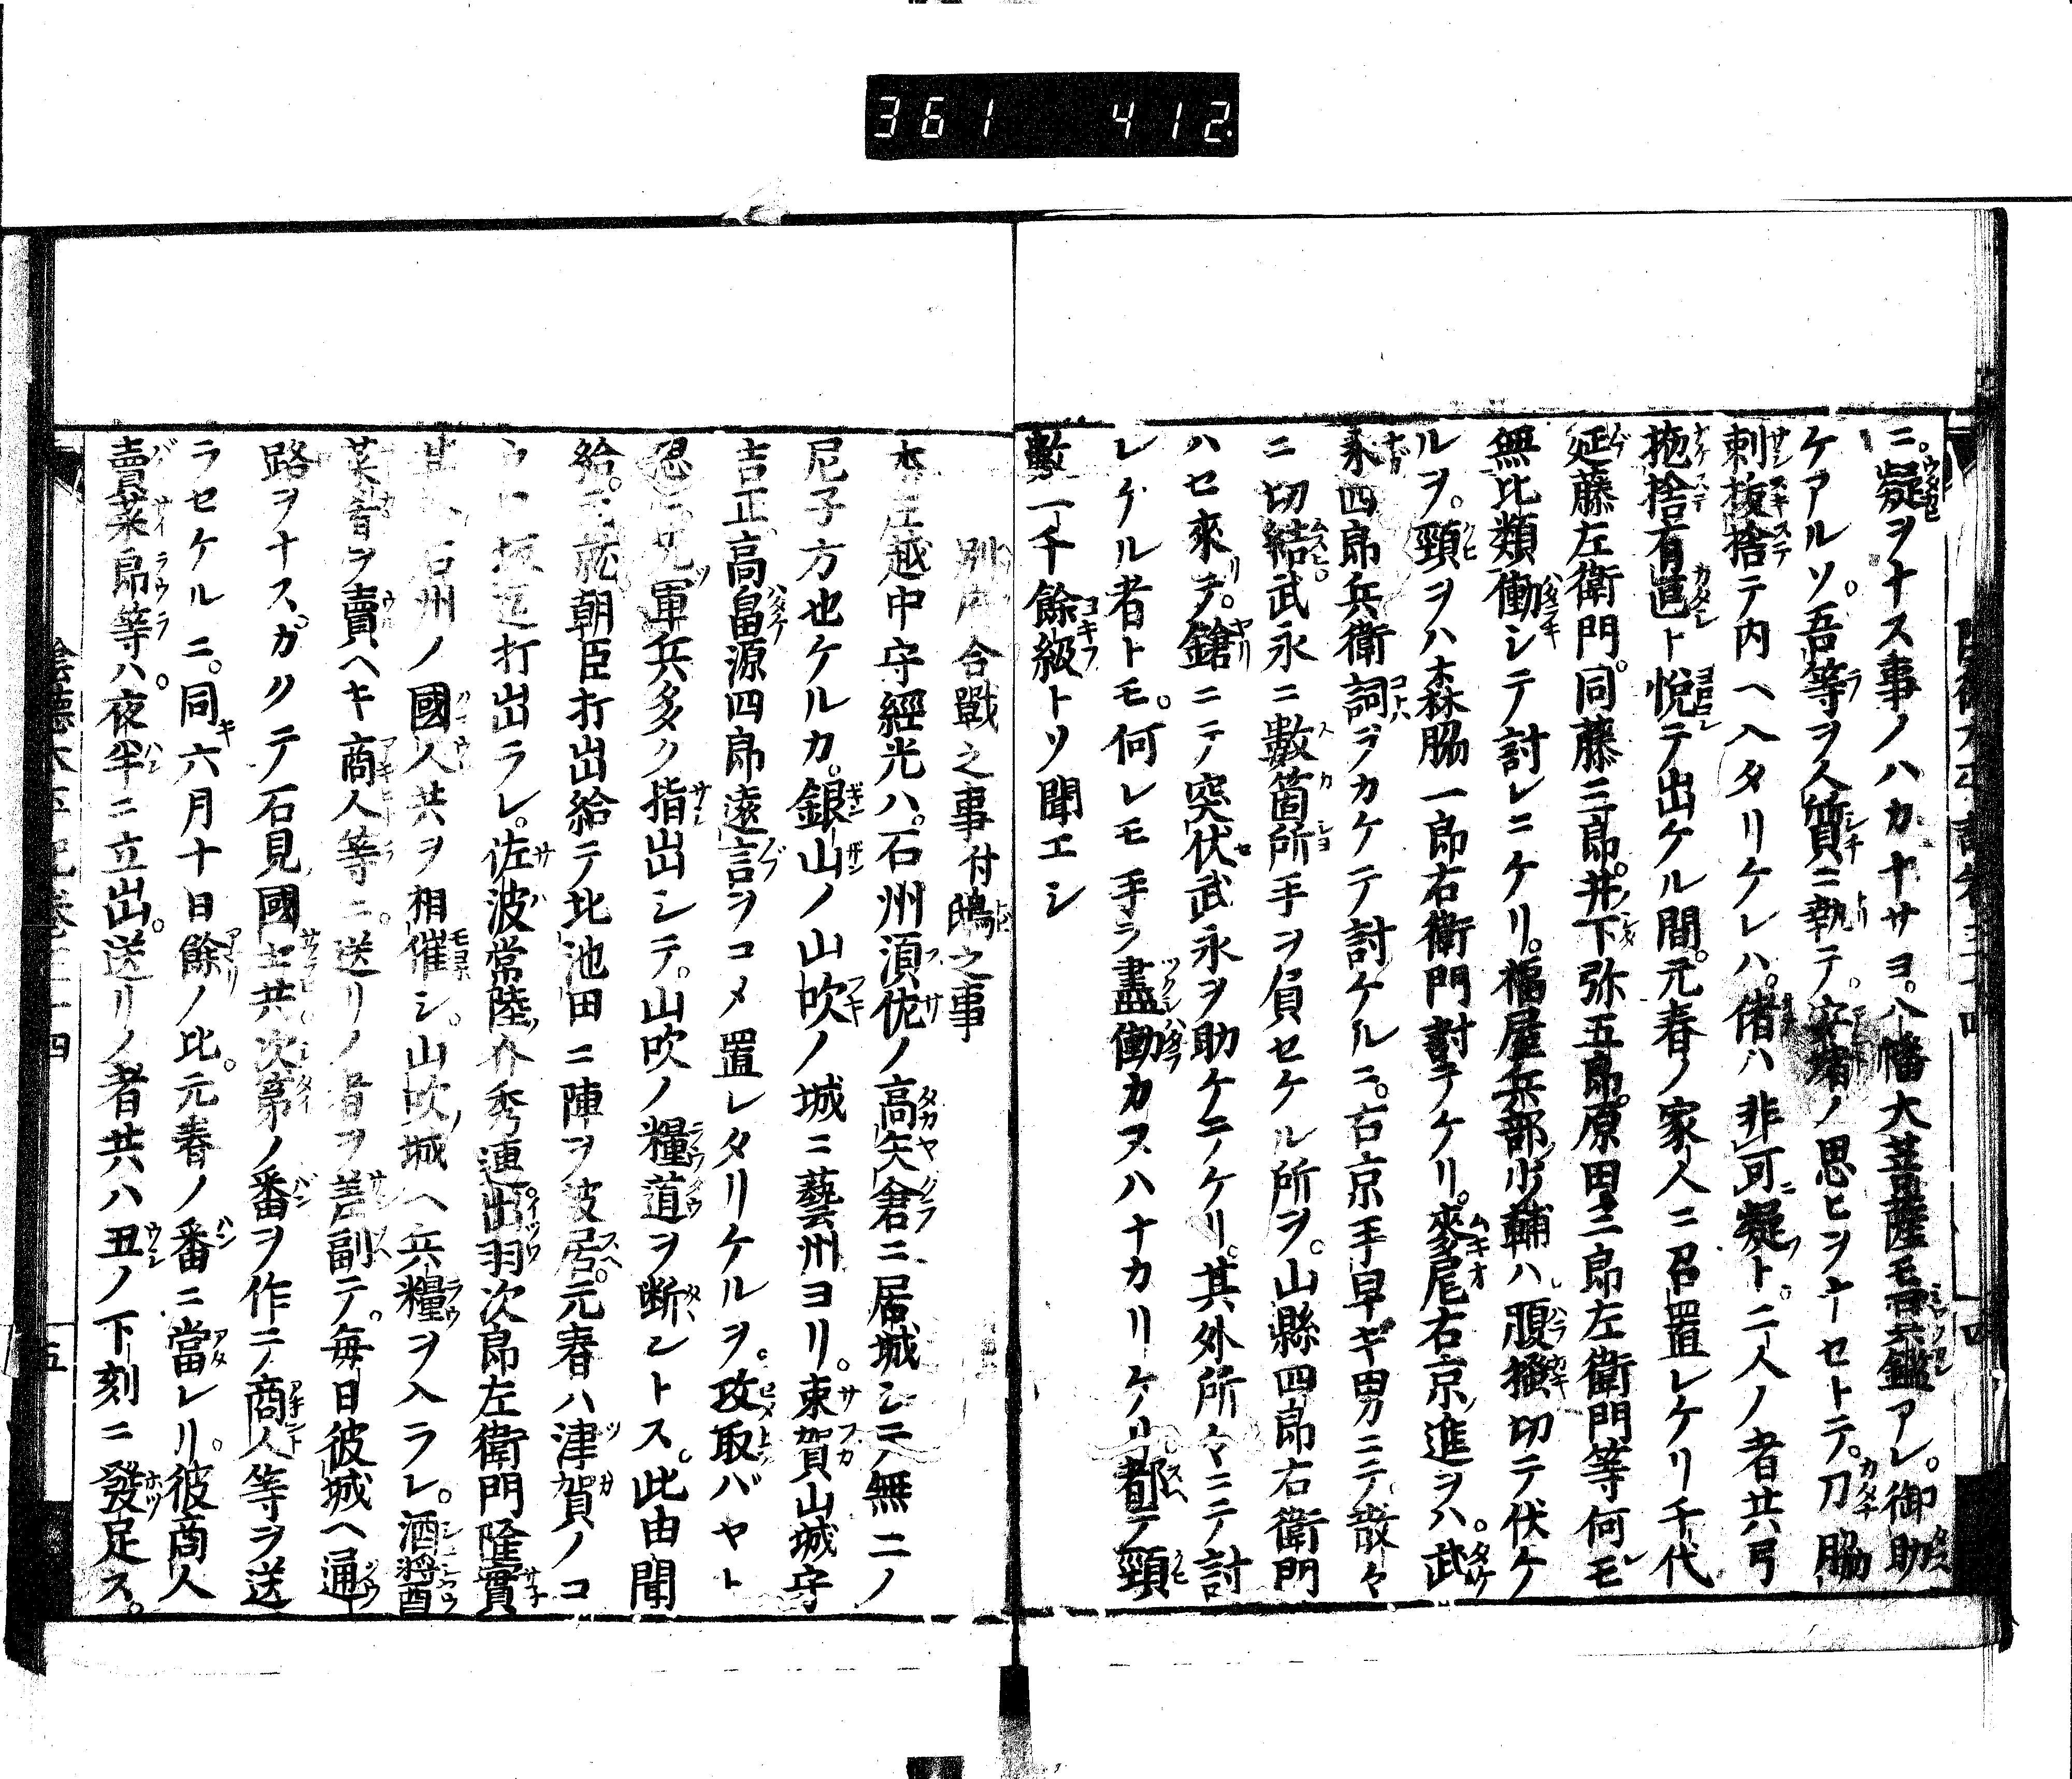 361 412.
ニ。凝ヲナス事ノハカナサヨ。八幡大菩薩モ冥鑑アレ。御助
ケアルソ。吾等ヲ人質ニ執テ。安堵ノ思ヒヲナセトテ。刀脇
刺抜捨テ内ヘ入タリケレハ。偖ハ非可凝ト。二人ノ者共弓
拖捨有邑ト悦テ出ケル間。元春ノ家人ニ召置レケリ千代
延藤左衛門。同藤三郎。井下弥五郎。原田三郎左衛門等何モ
無比類働シテ討レニケリ。福屋兵部少輔ハ腹搔切テ伏ケ
ルヲ。頸ヲハ森脇一郎右衛門討テケリ。來尾右京進ヲハ。武
永四郎兵衛詞ヲカケテ討ケルニ。右京手早キ男ニテ。散々
ニ切結。武永ニ數箇所手ヲ負セケル所ヲ。山縣四郎右衛門
ハセ來テ。鎗ニテ突伏武永ヲ助ケテケリ。其外所々ニテ討
レケル者トモ。何レモ手ヲ盡働カヌハナカリケリ都テ頸
數一千餘級トソ聞エシ
別府合戰之事付鵄之事
本庄越中守經光ハ。石州須佐ノ高矢倉ニ居城シテ無二ノ
尼子方也ケルカ。銀山ノ山吹ノ城ニ藝州ヨリ。東賀山城守
吉正高畠源四郎遠言ヲコメ置レタリケルヲ。攻取バヤト
軍兵多ク指出シテ。山吹ノ糧道ヲ断ントス。此由聞
給テ。朝臣打出給テ比池田ニ陣ヲ被居。元春ハ津賀ノコ
打出ラレ。佐波常陸介秀連出羽次郎左衛門隆實
石州ノ國人共ヲ相催シ。山吹城ヘ兵糧ヲ入ラレ。酒將酉
菜肴ヲ賣ヘキ商人等ニ。送リノ者ヲ差副テ。毎日彼城ヘ通
路ヲナス。カクテ石見國士共次第ノ番ヲ作テ商人等ヲ送
ラセケルニ。同六月十日餘ノ比。元春ノ番ニ當レリ。彼商人
賣菜郎等ハ。夜半ニ立出。送リノ者共ハ丑ノ下刻ニ發足ス。
陰德太平記卷三十四 五